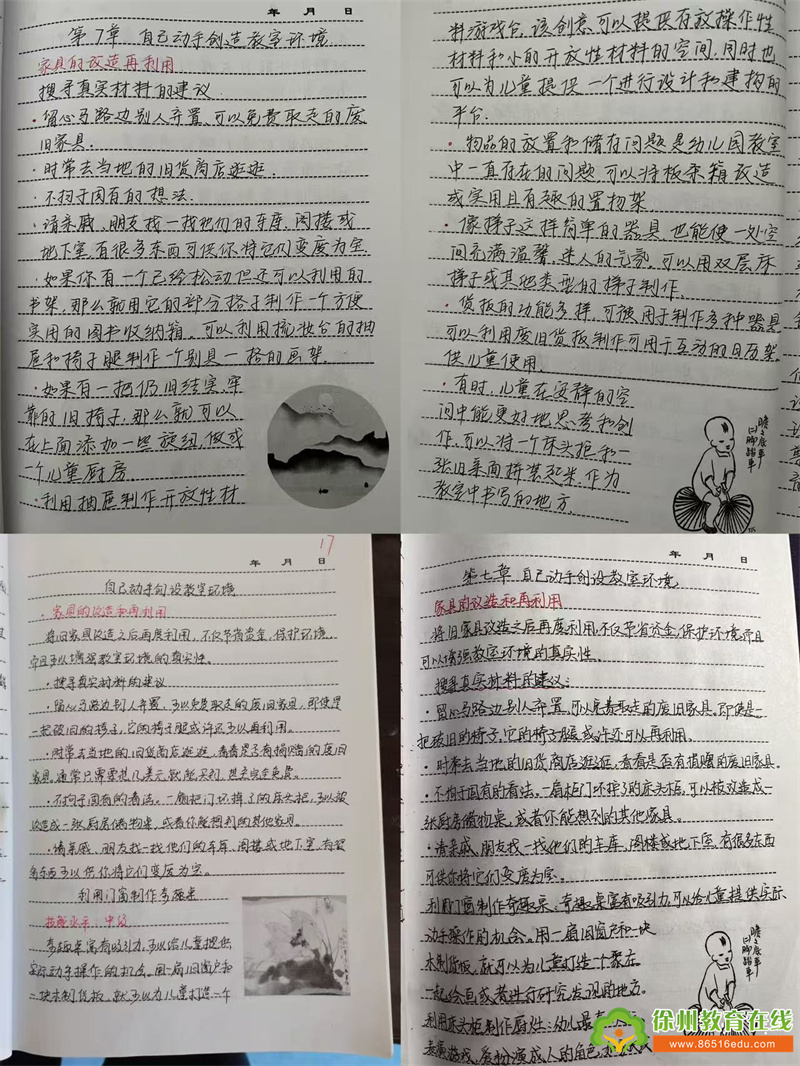 年 月 日
第7章 自己动手创造教室环境
家具的改造再利用
搜寻真实材料的建议
·留心马路边别人弃置、可以免费取走的废
旧家具.
·时常去当地的旧货商店逛逛.
·不拘于固有的想法.
·请亲戚、朋友找一找他们的车库、阁楼或
地下室,有很多东西可供你将它们变废为宝
·如果你有一个已经松动但还可以利用的
书架,那么就用它的部分格子制作一个方便
实用的图书收纳箱。可以利用梳妆台的抽
屉和椅子腿制作一个别具一格的画架.
·如果有一把仍旧结实牢
靠的旧椅子,那么就可以
在上面添加一些旋钮,做成
一个儿童厨房。
·利用抽屉制作开放性材
料游戏台,该创意可以提供存放操作性
材料和小的开放性材料的空间,同时也
可以为儿童提供一个进行设计和建构的
平台.
·物品的放置和储存问题是幼儿园教室
中一直存在的问题,可以将板条箱改造
成实用且有趣的置物架
·像梯子这样简单的器具,也能使一处空
间充满温馨、迷人的气氛,可以用双层床
梯子或其他类型的梯子制作.
·货板的功能多样,可被用于制作多种器具
可以利用废旧货板制作可用于互动的日历架,
供儿童使用.
·有时,儿童在安静的空
间中能更好地思考和创
作,可以将一个床头柜和一
张旧桌面拼装起来,作为
教室中书写的地方.
瞻瞻底车
脚踏车
17
年 月 日
自己动手创设教室环境
·家具的改造和再利用
将旧家具改造之后再度利用,不仅节省资金,保护环境,
而且可以增强教室环境的真实性。
·搜寻真实材料的建议
·留心马路边别人弃置、可以免费取走的废旧家具,即使是
一把破旧的椅子,它的椅子腿或许还可以再利用。
·时常去当地的旧货商店逛逛,看看是否有捐赠的废旧
家具。通常只需要花几美元就能买到,甚至完全免费。
·不拘于固有的看法。一扇柜门坏掉了的床头柜,可以被
改造成一张厨房储物桌,或者你能想到的其他家具。
·请亲戚、朋友找一找他们的车库、阁楼或地下室,有很
多东西可以供你将它们变废为宝。
利用门窗制作奇趣桌
技能水平:中级
奇趣桌富有吸引力,可以给儿童提供
实际动手操作的机会。用一扇旧窗户和
一块木制货板,就可以为儿童打造一个
年 月 日
第七章 自己动手创设教室环境
家具的改造和再利用
将旧家具改造之后再度利用,不仅节省资金,保护环境,而且
可以增强教室环境的真实性。
搜寻真实材料的建议:
·留心马路边别人弃置,可以免费取走的废旧家具,即使是一
把破旧的椅子,它的椅子腿或许还可以再利用。
·时常去当地的旧货商店逛逛,看看是否有捐赠的废旧家具。
·不拘于固有的看法。一扇柜门坏掉了的床头柜,可以被改造成一
张厨房储物桌,或者你能想到的其他家具。
·请亲戚、朋友找一找他们的车库、阁楼或地下室,有很多东西
可供你将它们变废为宝。
利用门窗制作奇趣桌:奇趣桌富有吸引力,可以给儿童提供实际
动手操作的机会。用一扇旧窗户和一块
木制货板,就可以为儿童打造一个聚在
一起绘画或者进行研究发现的地方。
利用床头柜制作厨灶:幼儿最喜
表演游戏,爱扮演成人的角色,
瞻瞻底车
脚踏车
徐州教育在线
www.86516edu.com